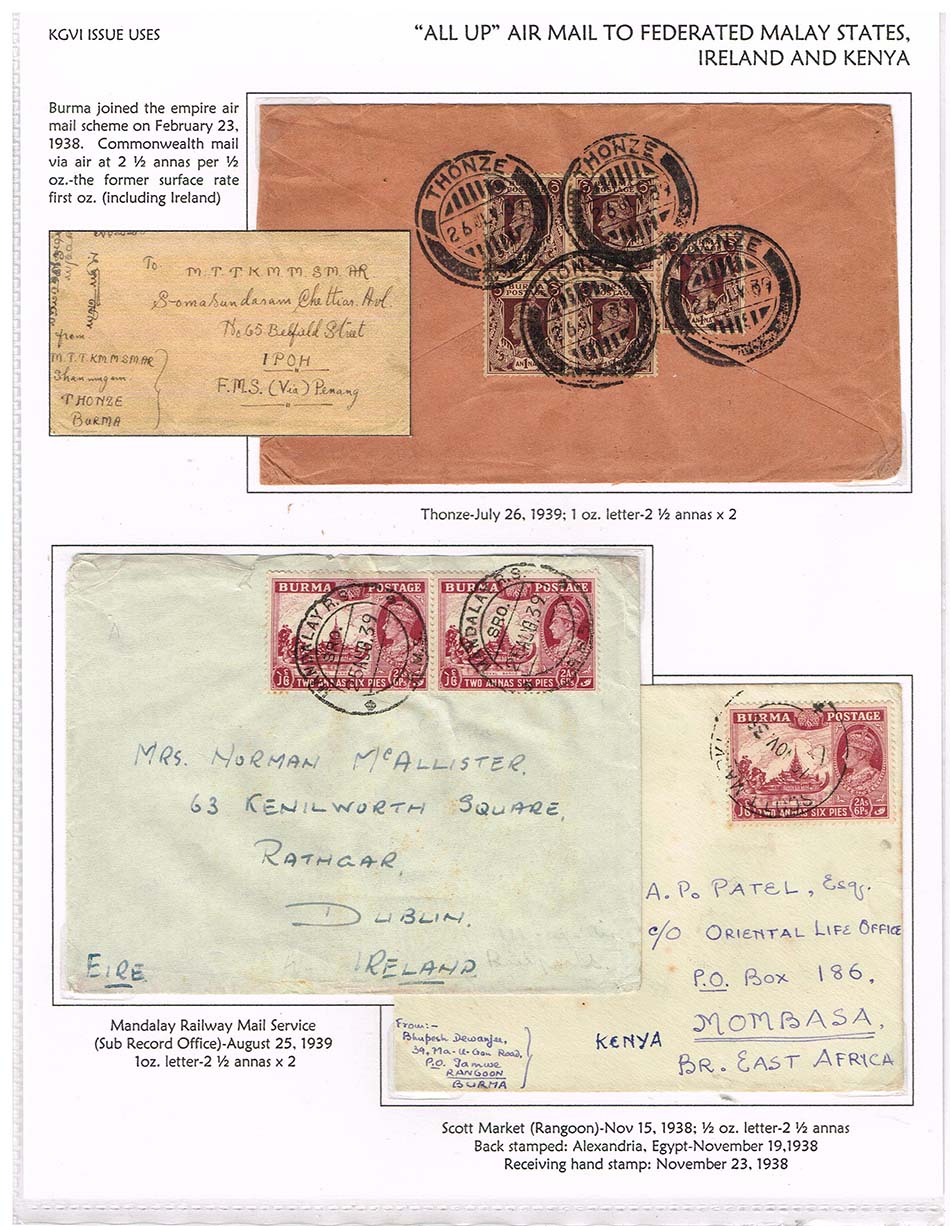 KGVI ISSUE USES
“ALL UP” AIR MAIL TO FEDERATED MALAY STATES,
IRELAND AND KENYA
Burma joined the empire air
mail scheme on February 23,
1938. Commonwealth mail
via air at 2 ½ annas per ½
oz.-the former surface rate
first oz. (including Ireland)
To
M T T K M M S M A R
Somasundaram Chettiar Avl.
No 65 Belfield Street
IPOH
F.M.S. (Via) Penang
from
M.T.T.KMMSMAR
Shanmugam
THONZE
BURMA
THONZE
THONZE
THONZE
THONZE
BURMA
POSTAGE
Thonze-July 26, 1939; 1 oz. letter-2 ½ annas x 2
BURMA POSTAGE
TWO ANNAS SIX PIES
2As 6Ps
BURMA POSTAGE
TWO ANNAS SIX PIES
2As 6Ps
MANDALAY R.S.
SRO.
25 AUG 39
MANDALAY R.S.
SRO.
25 AUG 39
MRS. NORMAN McALLISTER.
63 KENILWORTH SQUARE,
RATHGAR,
DUBLIN.
EIRE IRELAND
Mandalay Railway Mail Service
(Sub Record Office)-August 25, 1939
1oz. letter-2 ½ annas x 2
BURMA POSTAGE
TWO ANNAS SIX PIES
2As 6Ps
A. P. PATEL, Esq.
c/o ORIENTAL LIFE OFFICE
P.O. Box 186,
MOMBASA,
KENYA
BR. EAST AFRICA
From:-
Bhupesh Dewanjee,
39, Ma-U-Gon Road,
P.O. Tamwe
RANGOON
BURMA
Scott Market (Rangoon)-Nov 15, 1938; ½ oz. letter-2 ½ annas
Back stamped: Alexandria, Egypt-November 19,1938
Receiving hand stamp: November 23, 1938